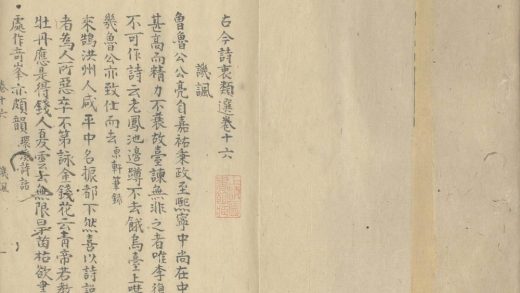 古今詩衷類選卷十六
譏諷
魯魯公公亮自嘉祐秉政至熙寧中尚在中
甚高而精力不衰故臺諫無非之者唯李復
不可作詩云老鳳池邊蹲不去餓烏臺上噤
幾魯公亦致仕而去 東軒筆錄
來鵠洪州人咸平中名振都下然喜以詩譏
者為人所惡卒不第詠金錢花云青帝若教
牡丹應是得錢人夏雲云無限旱苗枯欲盡
處作奇峯亦頗韻 詩話
卷十六 譏諷